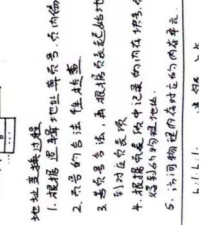 地址变换过程
1. 根据逻辑地址算页号、页内偏
2. 页号的合法性检查
3. 若页号合法，再根据页表起始地
到对应页表项
4. 根据页表项中记录的内存块号、
得到的物理地址.
5. 访问物理内存对应的内存单元.